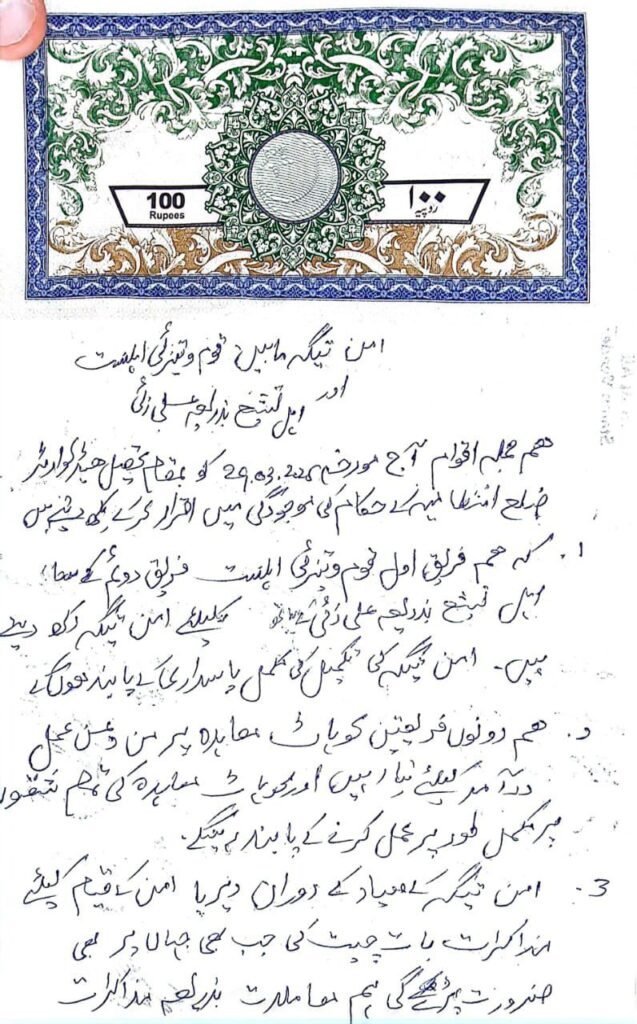 100
Rupees
۱۰۰
روپیہ
امن تیگہ مابین قوم وتیزئی اہلسنت
اور
اہل تشیع بذریعہ علی زئی
ہم جملہ اقوام آج مورخہ 29.03.2025 کو بمقام تحصیل ہیڈکوارٹر
ضلع انتظامیہ کے حکام کی موجودگی میں اقرار کرکے لکھ دیتے ہیں
1. کہ ہم فریق اول قوم وتیزئی اہلسنت فریق دوئم کے ساتھ
اہل تشیع بذریعہ علی زئی کے کیلئے امن تیگہ رکھ دیتے
ہیں۔ امن تیگہ کی تکمیل کی مکمل پاسداری کے پابند ہوں گے
2. ہم دونوں فریقین کوہاٹ معاہدہ پر من وعن عمل
درآمد کیلئے تیار ہیں اور کوہاٹ معاہدہ کی تمام شقوں
پر مکمل طور پر عمل کرنے کے پابند رہینگے۔
3. امن تیگہ کے میعاد کے دوران دیرپا امن کے قیام کیلئے
مذاکرات بات چیت کی جب بھی جہاں پر بھی
ضرورت پڑے گی ہم معاملات بذریعہ مذاکرات